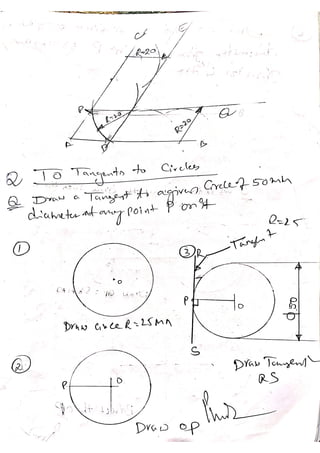 C E
R=20
P
R=20
R=20
Q
A D B
Q To Tangents to Circles
Q Draw a Tangent to a given Circle of 50mm
diameter at any point P on it
R=25
① ③ R Tangent
O
P O
Draw Circle R=25MM
S
Draw Tangent
RS
②
P O
Draw OP